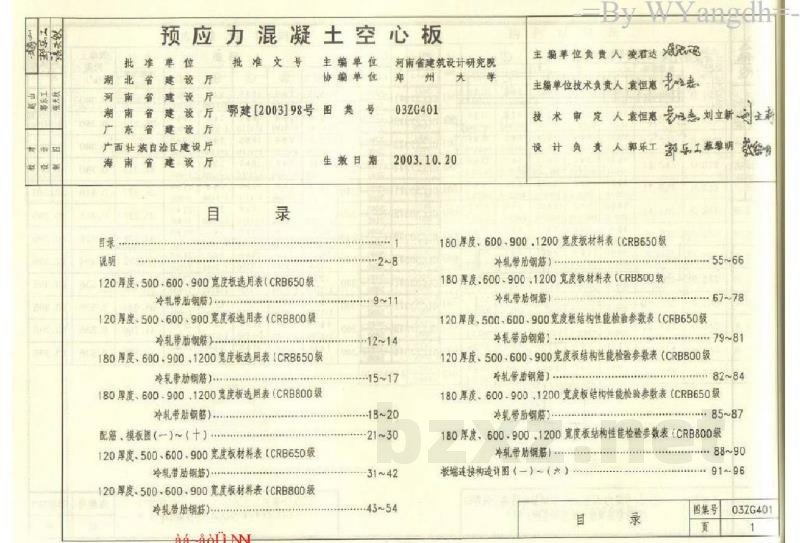 -=By WYangdh=-
预应力混凝土空心板
批准单位 批准文号 主编单位 河南省建筑设计研究院
协编单位 郑州大学
湖北省建设厅
河南省建设厅
湖南省建设厅 鄂建[2003]98号 图集号 03ZG401
广东省建设厅
广西壮族自治区建设厅
海南省建设厅 生效日期 2003.10.20
主编单位负责人 凌君达
主编单位技术负责人 袁恒惠
技术审定人 袁恒惠 刘立新
设计负责人 郭乐工 蔡黎明
目录
目录 1
说明 2~8
120厚度、500、600、900宽度板选用表(CRB650级
冷轧带肋钢筋) 9~11
120厚度、500、600、900宽度板选用表(CRB800级
冷轧带肋钢筋) 12~14
180厚度、600、900、1200宽度板选用表(CRB650级
冷轧带肋钢筋) 15~17
180厚度、600、900、1200宽度板选用表(CRB800级
冷轧带肋钢筋) 18~20
配筋、模板图(一)~(十) 21~30
120厚度、500、600、900宽度板材料表(CRB650级
冷轧带肋钢筋) 31~42
120厚度、500、600、900宽度板材料表(CRB800级
冷轧带肋钢筋) 43~54
180厚度、600、900、1200宽度板材料表(CRB650级
冷轧带肋钢筋) 55~66
180厚度、600、900、1200宽度板材料表(CRB800级
冷轧带肋钢筋) 67~78
120厚度、500、600、900宽度板结构性能检验参数表(CRB650级
冷轧带肋钢筋) 79~81
120厚度、500、600、900宽度板结构性能检验参数表(CRB800级
冷轧带肋钢筋) 82~84
180厚度、600、900、1200宽度板结构性能检验参数表(CRB650级
冷轧带肋钢筋) 85~87
180厚度、600、900、1200宽度板结构性能检验参数表(CRB800级
冷轧带肋钢筋) 88~90
板端连接构造详图(一)~(六) 91~96
目录 图集号 03ZG401
页 1
bzxz.net